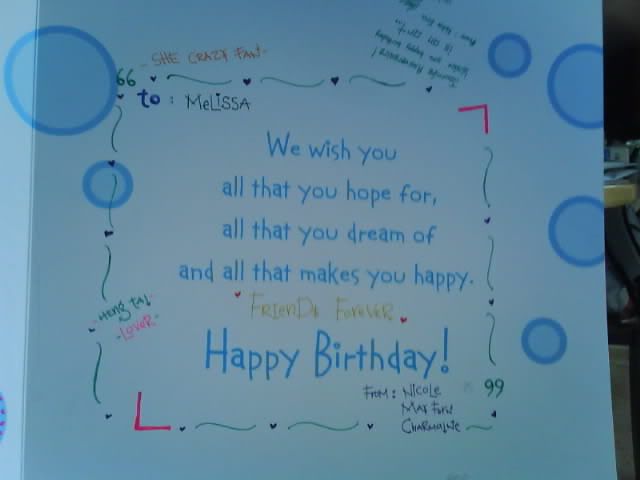 - SHE CRAZY FAN -
66
to : MeLiSSA
We wish you
all that you hope for,
all that you dream of
and all that makes you happy.
FRIENDS FOREVER
- HENG TAI -
- LOVER -
Happy Birthday!
99
FROM : NICOLE
CHARMAINE